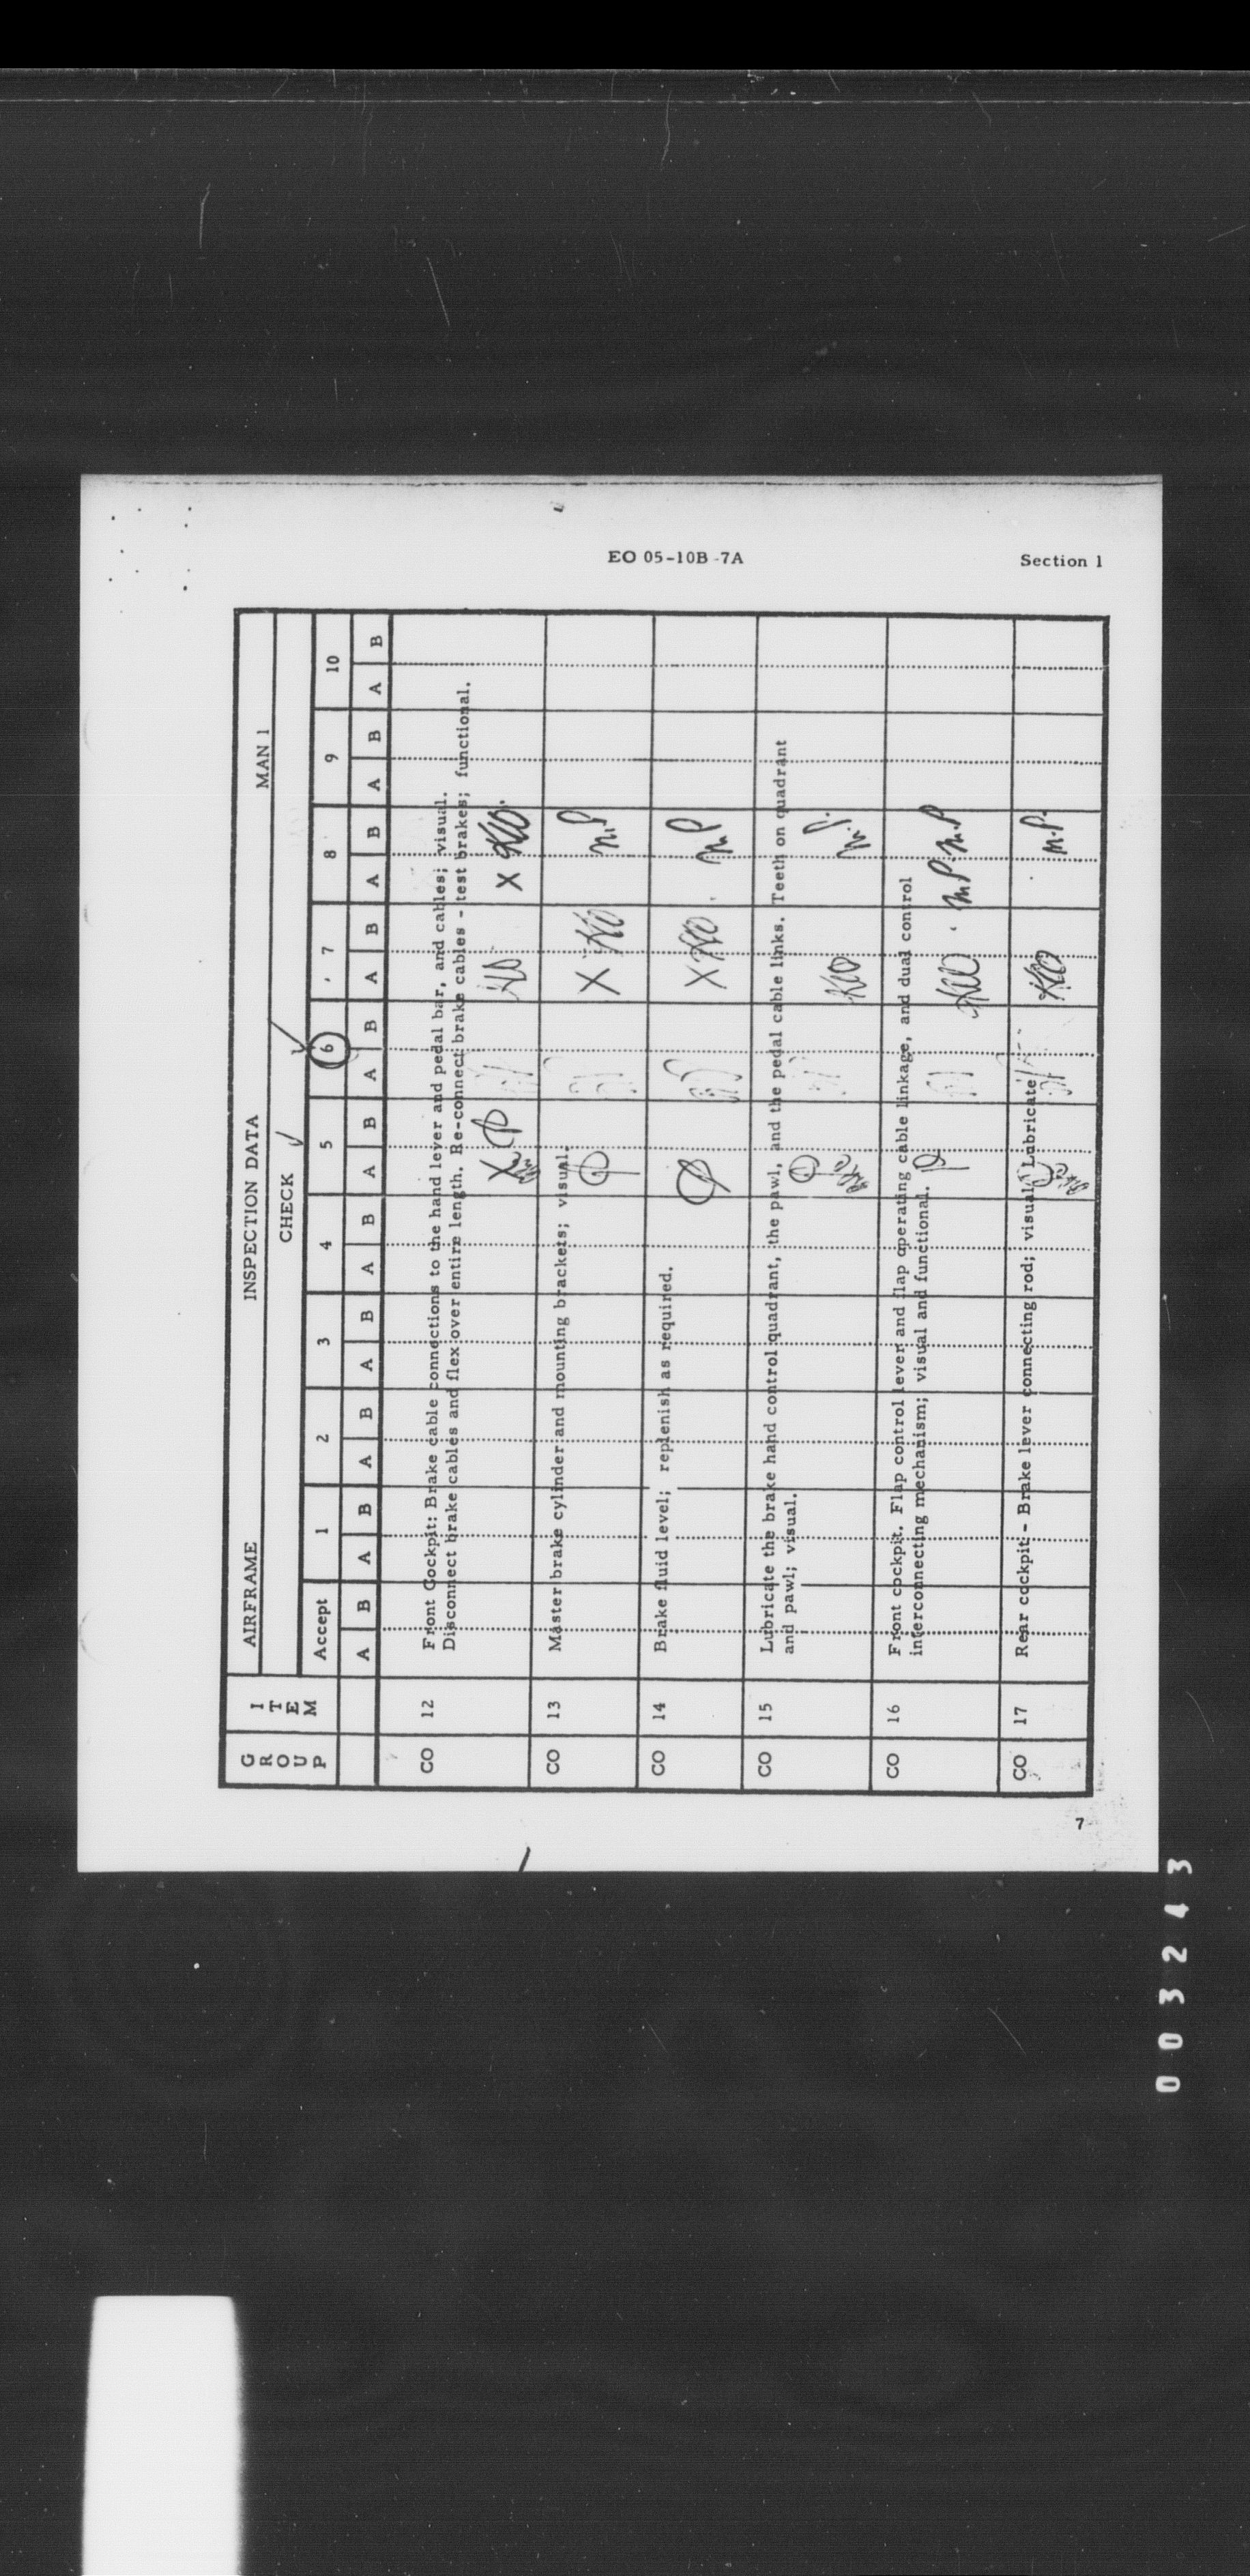 EO 05-10B-7A
Section 1
GROUP
ITEM
AIRFRAME INSPECTION DATA MAN 1
CHECK
Accept 1 2 3 4 5 6 7 8 9 10
A B A B A B A B A B A B A B A B A B A B A B
CO 12 Front Cockpit: Brake cable connections to the hand lever and pedal bar, and cables; visual.
Disconnect brake cables and flex over entire length. Re-connect brake cables - test brakes; functional.
X X
CO 13 Master brake cylinder and mounting brackets; visual.
X M.P
CO 14 Brake fluid level; replenish as required.
X M.P
CO 15 Lubricate the brake hand control quadrant, the pawl, and the pedal cable links. Teeth on quadrant
and pawl; visual.
M.P.
CO 16 Front cockpit. Flap control lever and flap operating cable linkage, and dual control
interconnecting mechanism; visual and functional.
M.P. M.P
CO 17 Rear cockpit - Brake lever connecting rod; visual. Lubricate
M.P.
7
003243